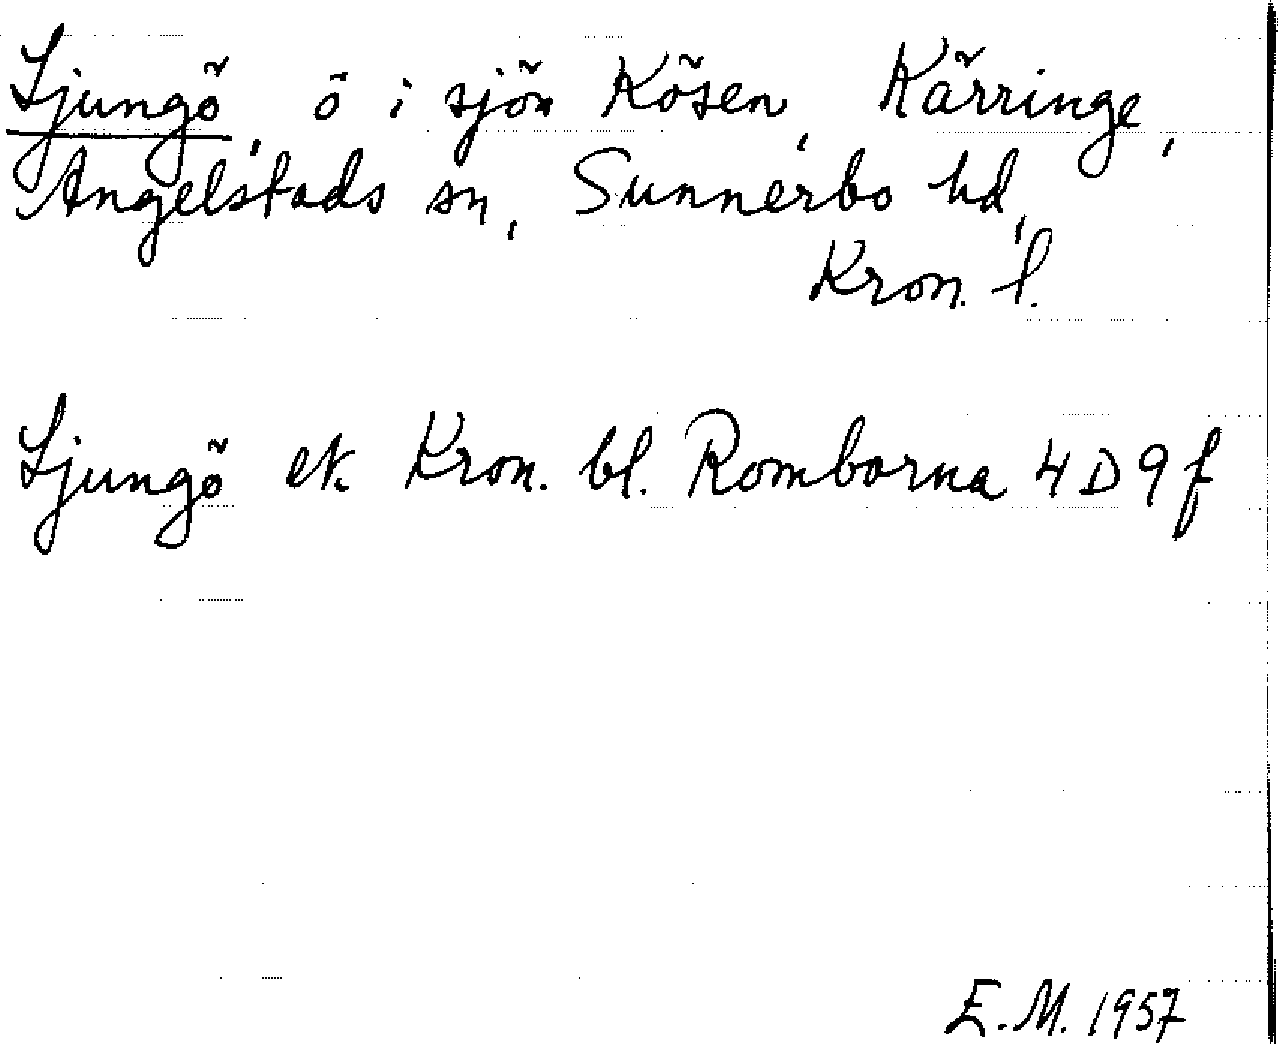 Ljungö, ö i sjön Kösen, Kärringe,
Angelstads sn, Sunnerbo hd,
Kron. l.
Ljungö ek. Kron. bl. Romborna 4D9f
E.M. 1957